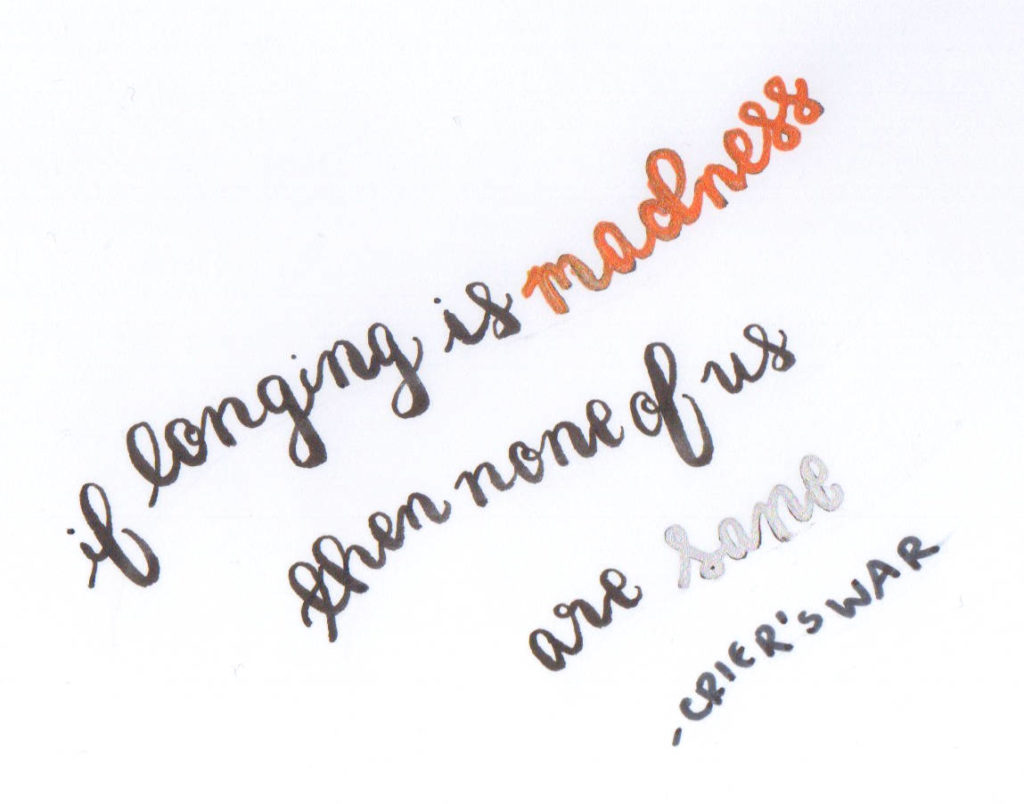 if longing is madness
then none of us
are sane
-CRIER'S WAR